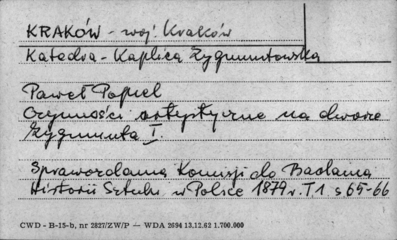 KRAKÓW - woj. Kraków
Katedra - Kaplica Zygmuntowska
Paweł Popiel
Czynności artystyczne na dworze
Zygmunta I.
Sprawozdania Komisji do Badania
Historii Sztuki w Polsce 1879 r. T. 1 s 65-66
CWD - B-15-b, nr 2827/ZW/P — WDA 2694 13.12.62 1.700.000